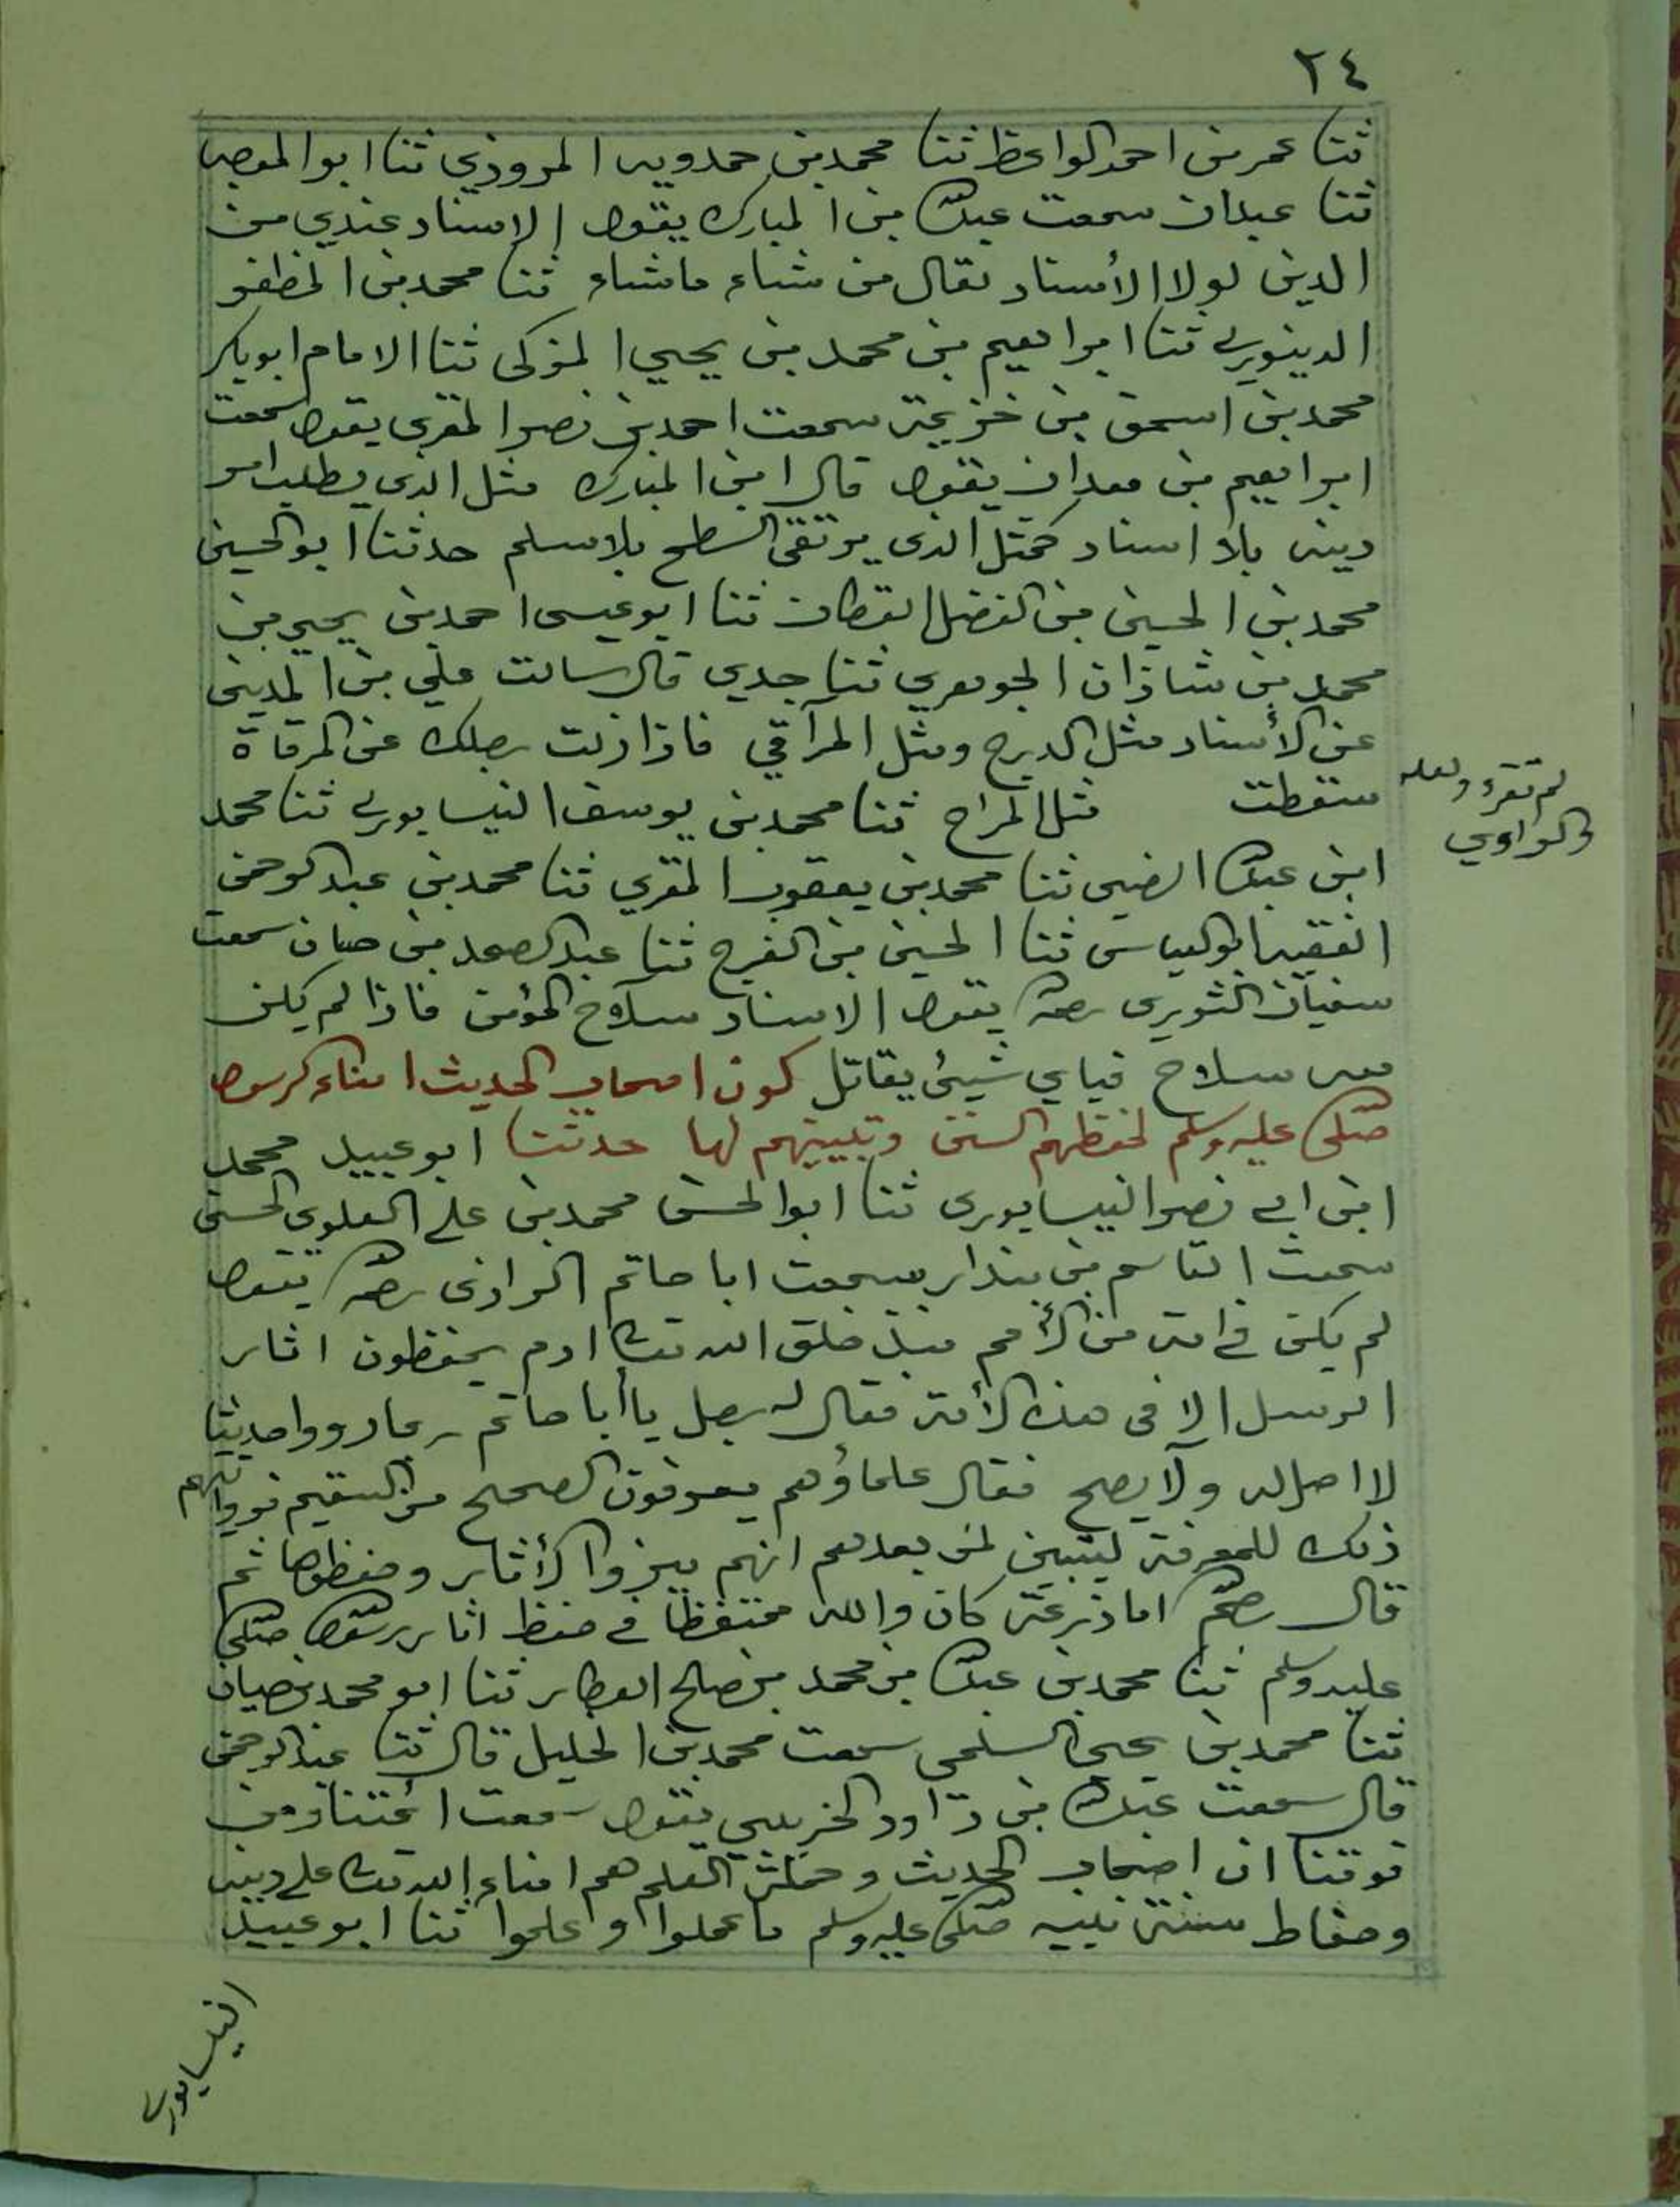 ٢٤
ثنا عمر بن احمد الواعظ ثنا محمد بن حمدويه المروزي ثنا ابو الموجه
ثنا عبدان سمعت عبدالله بن المبارك يقول الاسناد عندي من
الدين لولا الأسناد لقال من شاء ماشاء ثنا محمد بن المظفر
الدينوري ثنا ابراهيم بن محمد بن يحيي المزكى ثنا الامام ابوبكر
محمد بن اسحق بن خزيمة سمعت احمد بن نصر المقري يقول سمعت
ابراهيم بن معدان يقول قال ابن المبارك مثل الذي يطلب امر
دينه بلا اسناد كمثل الذى يرتقى السطح بلاسلم حدثنا ابوالحسين
محمد بن الحسين بن الفضل القطان ثنا ابوعيسى احمد بن يحيى بن
محمد بن شاذان الجوهري ثنا جدي قال سالت علي بن المديني
عن الأسناد مثل الدرج ومثل المرآقي فاذا زلت رجلك عن المرقاة
سقطت مثل المراح ثنا محمد بن يوسف النيسابوري ثنا محمد
لم تقرء ولعله
والراوي
ابن عبدالله الضبى ثنا محمد بن يعقوب المقري ثنا محمد بن عبدالرحمن
الفقيه ابوالعباس ثنا الحسين بن الفرج ثنا عبدالصمد بن حسان سمعت
سفيان الثوري رحمه الله يقول الاسناد سلاح المؤمن فاذا لم يكن
معه سلاح فباي شيئ يقاتل كون اصحاب الحديث امناء الرسول
صلى الله عليه وسلم لحفظهم السنن وتبيينهم لها حدثنا ابوعبيد محمد
ابن ابي نصر النيسابورى ثنا ابوالحسن محمد بن علي العلوي الحسنى
سمعت القاسم بن بندار سمعت ابا حاتم الرازى رحمه الله يقول
لم يكن في امة من الأمم منذ خلق الله تعالى ادم يحفظون اثار
الرسل الا فى هذه الأمة فقال له رجل يا أبا حاتم ربما رووا حديثا
لا اصل له ولا يصح فقال علماؤهم يعرفون الصحيح من السقيم فروايتهم
ذلك للمعرفة ليتبين لمن بعدهم انهم ميزوا الأثار وحفظوها ثم
قال رحم الله ابا زرعة كان والله مجتهدا في حفظ اثار رسول الله صلى الله
عليه وسلم ثنا محمد بن عبدالله بن محمد بن صالح العطار ثنا ابو محمد بن حيان
ثنا محمد بن يحيى السلمى سمعت محمد بن الخليل قال ثنا عبدالرحمن
قال سمعت عبدالله بن داود الخريبي يقول سمعت ائمتنا ومن
فوقنا ان اصحاب الحديث وحملة العلم هم امناء الله تعالى على دينه
وحفاظ سنة نبيه صلى الله عليه وسلم ما عملوا وعلموا ثنا ابوعبيد
النيسابوري